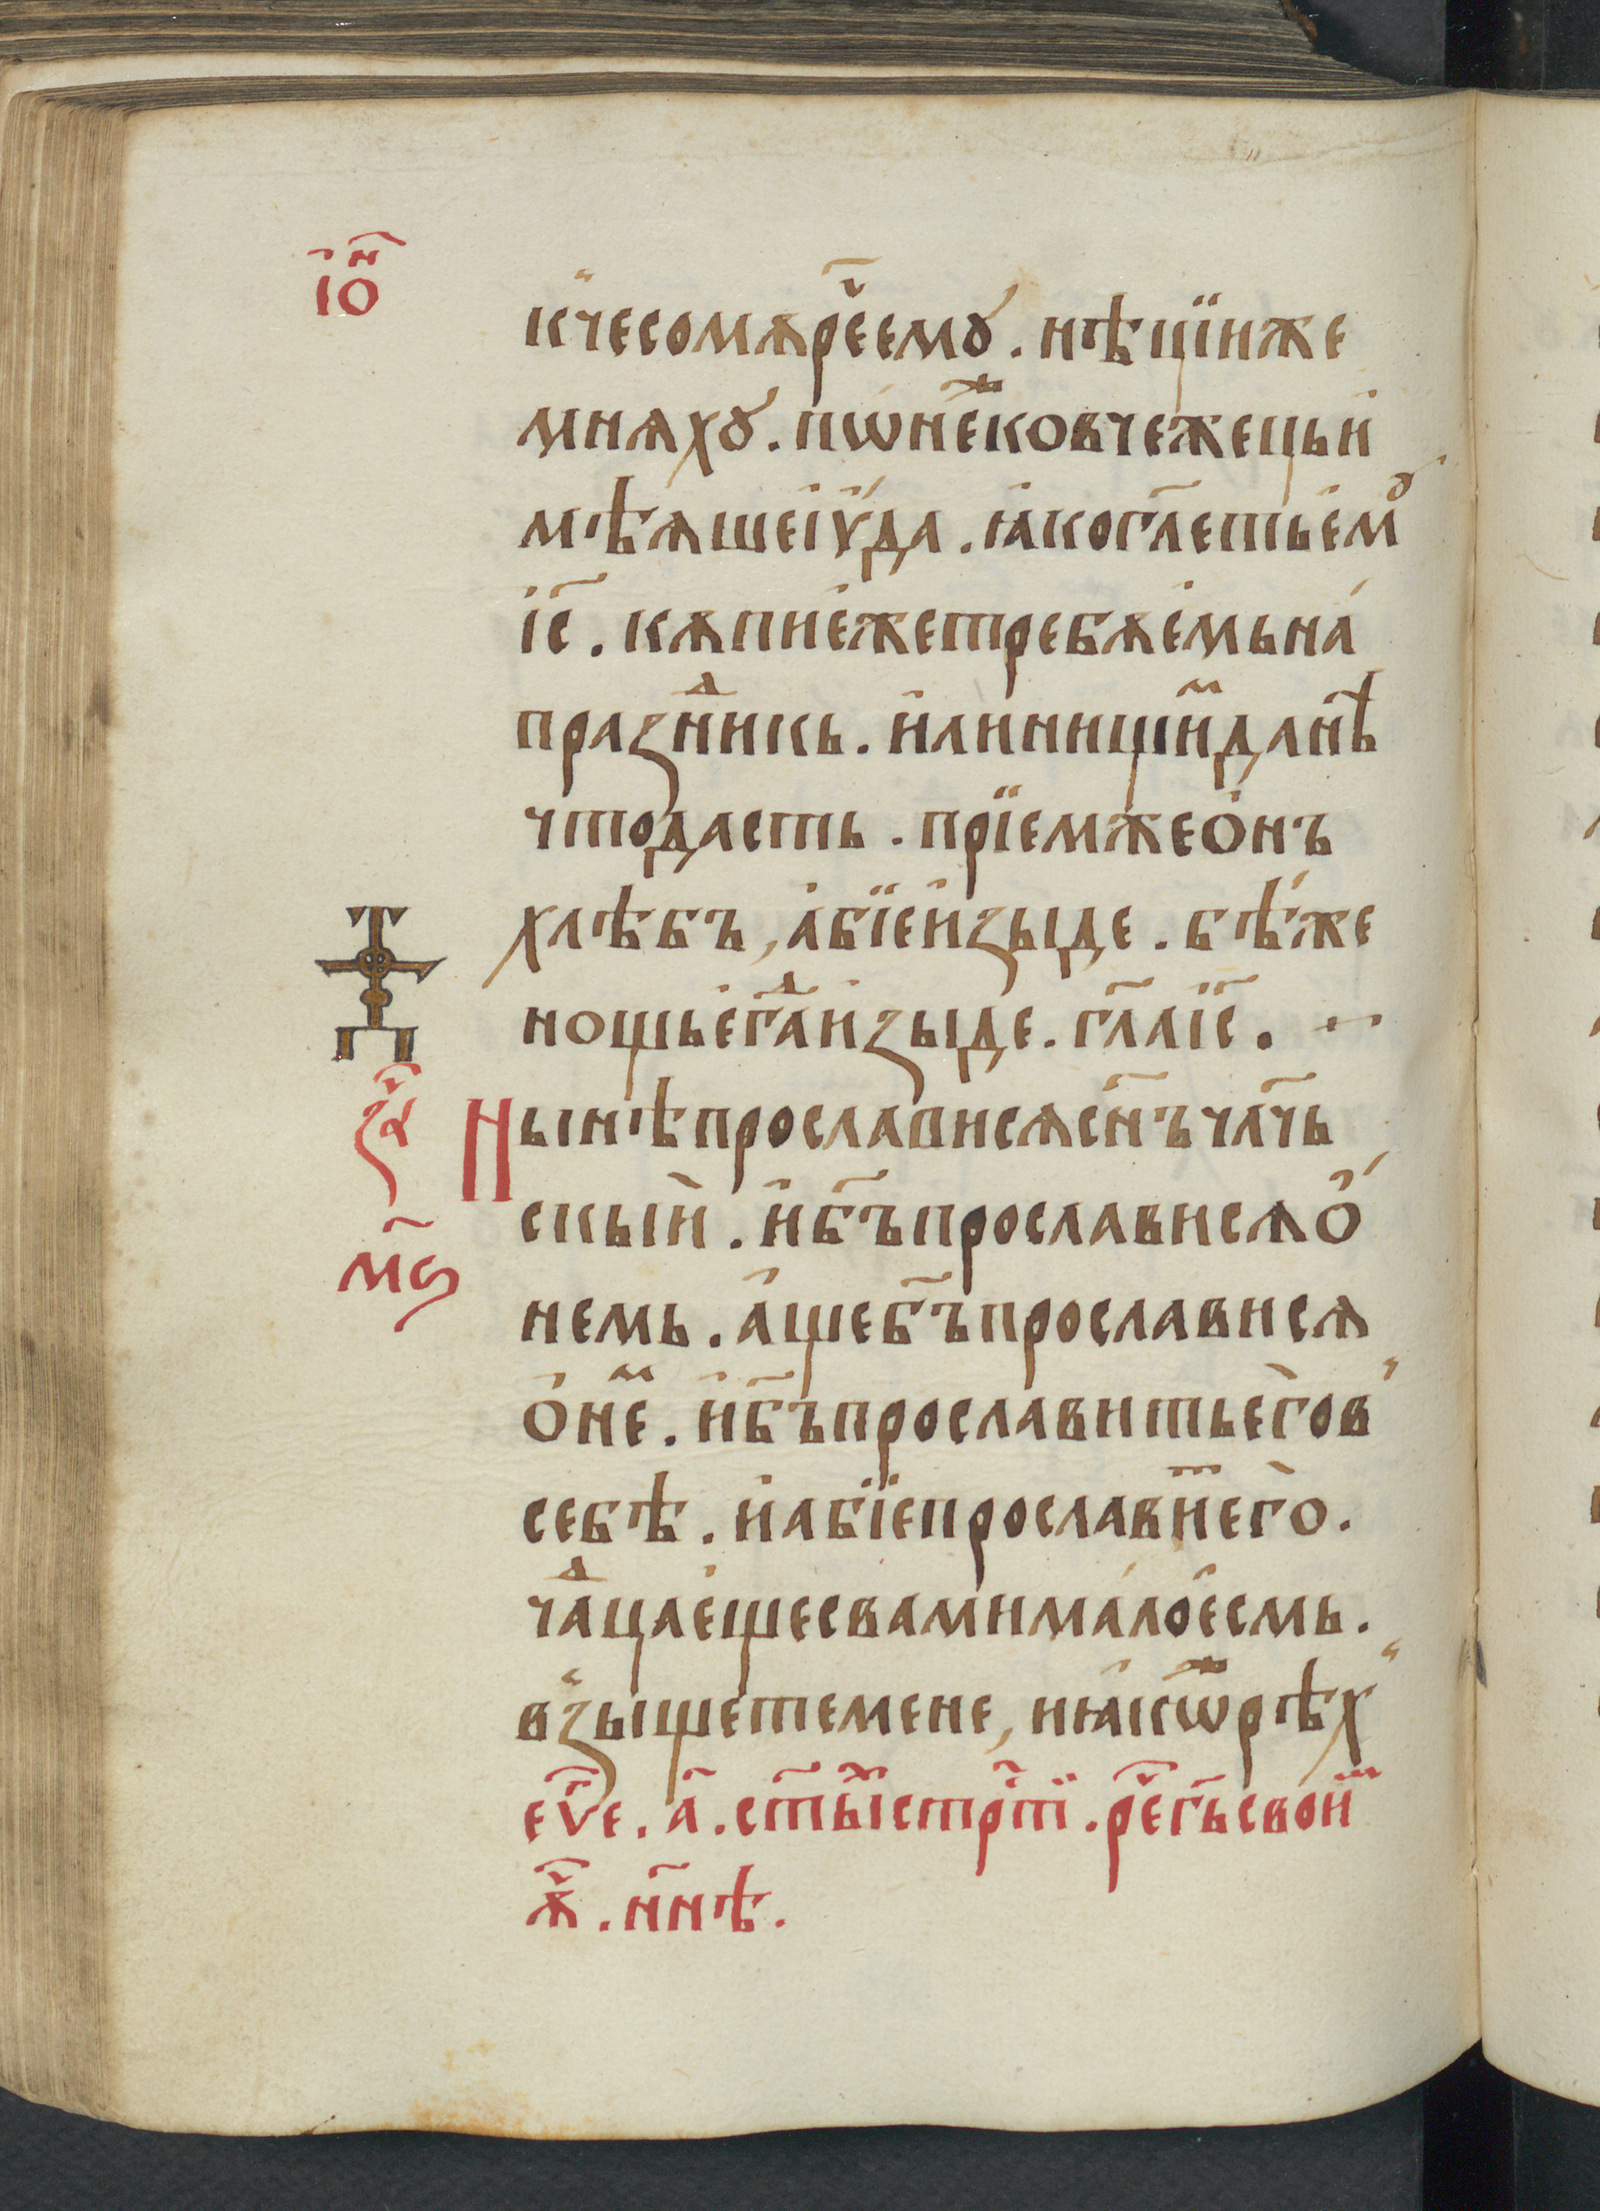 іѡ҃н
к чесомѧ рече҃емꙋ . нѣцїиже
мнѧхꙋ . пѡнеⷤковчежець и҆
мѣѧшеі҆ꙋ́да . ꙗ҆когл҃етьемꙋ
і҆с҃ . кѧпие҆жетребѧе҆мьна́
празⷣникь . и҆линищиⷨдані҆ѣ
чтодасть . прїемжео҆нъ
хлѣбъ , а҆бїеи҆зыде . бѣ́же
нощье҆гⷣаи҆зыде . гл҃аі҆с҃ .
за҃ч
Нынѣпрослависѧсн҃ъчл҃чь
скыи҆ . и҆бг҃ъпрослависѧо҆
м҃ѕ
немь . а҆щебг҃ъпрослависѧ
о҆неⷨ . и҆бг҃ъпрославитье҆гов
себѣ . и҆абїепрославиⷮего̀ .
чаⷣцае҆щесвамима́лое҆смь .
взыщетемене , и҆ꙗ҆коⷤрѣх
еѵⷢ҇е . а҃ . ст҃ыⷯстрⷭ҇тїи . реⷱ҇гь҃своиⷨ
ѹⷱ҇ . нн҃ѣ .